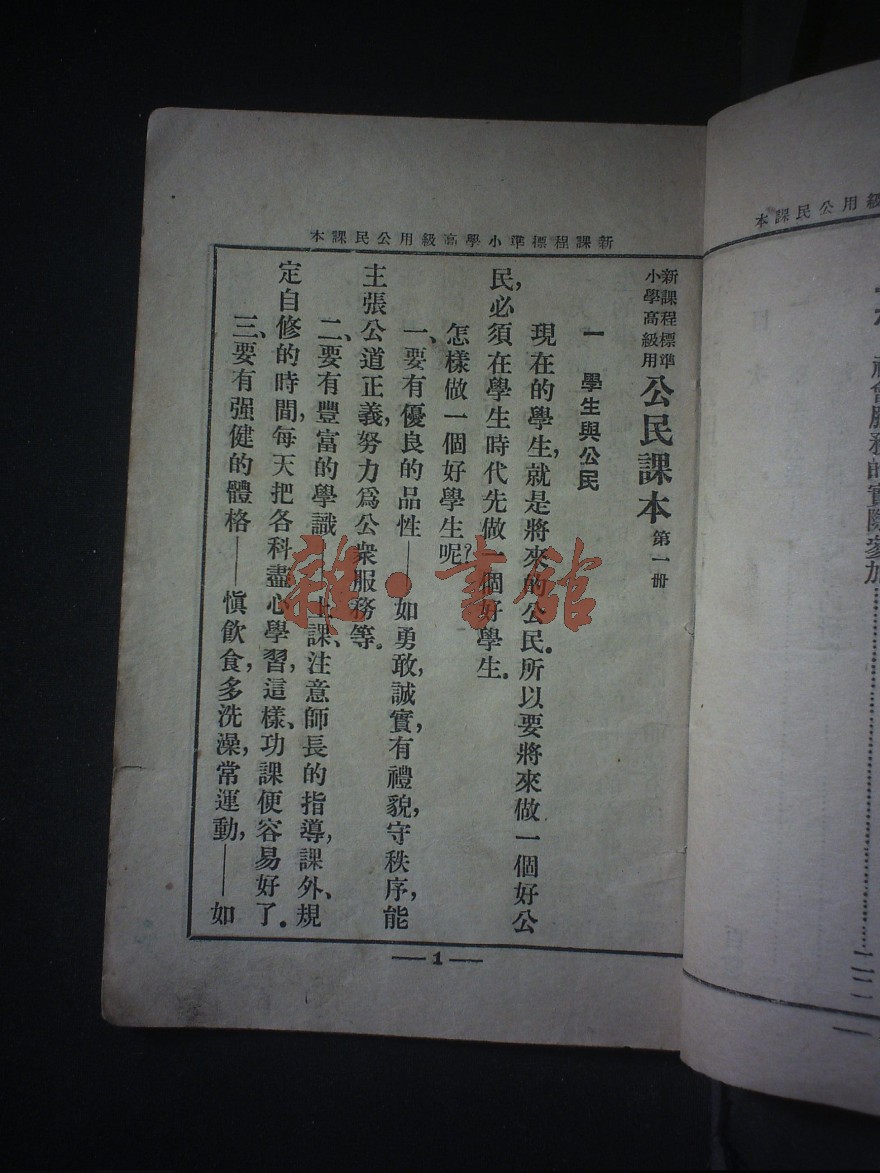 新課程標準小學高級用公民課本
新課程標準
小學高級用
公民課本 第一册
一 學生與公民
現在的學生,就是將來的公民。所以要將來做一個好公
民,必須在學生時代先做一個好學生。
怎樣做一個好學生呢?
一、要有優良的品性——如勇敢,誠實,有禮貌,守秩序,能
主張公道正義,努力爲公衆服務等。
二、要有豐富的學識——上課、注意師長的指導,課外、規
定自修的時間,每天把各科盡心學習,這樣、功課便容易好了。
三、要有强健的體格——愼飲食,多洗澡,常運動,——如
— 1 —
雜·書館
級用公民課本
社會服務的實際參加